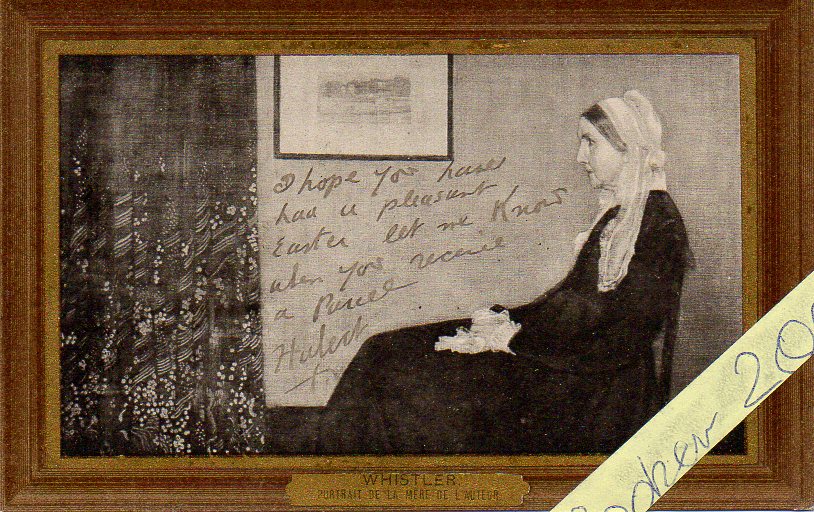 I hope you have
had a pleasant
Easter let me know
when you receive
a Parcel
Hubert
WHISTLER
PORTRAIT DE LA MÈRE DE L'AUTEUR
ndrew 20